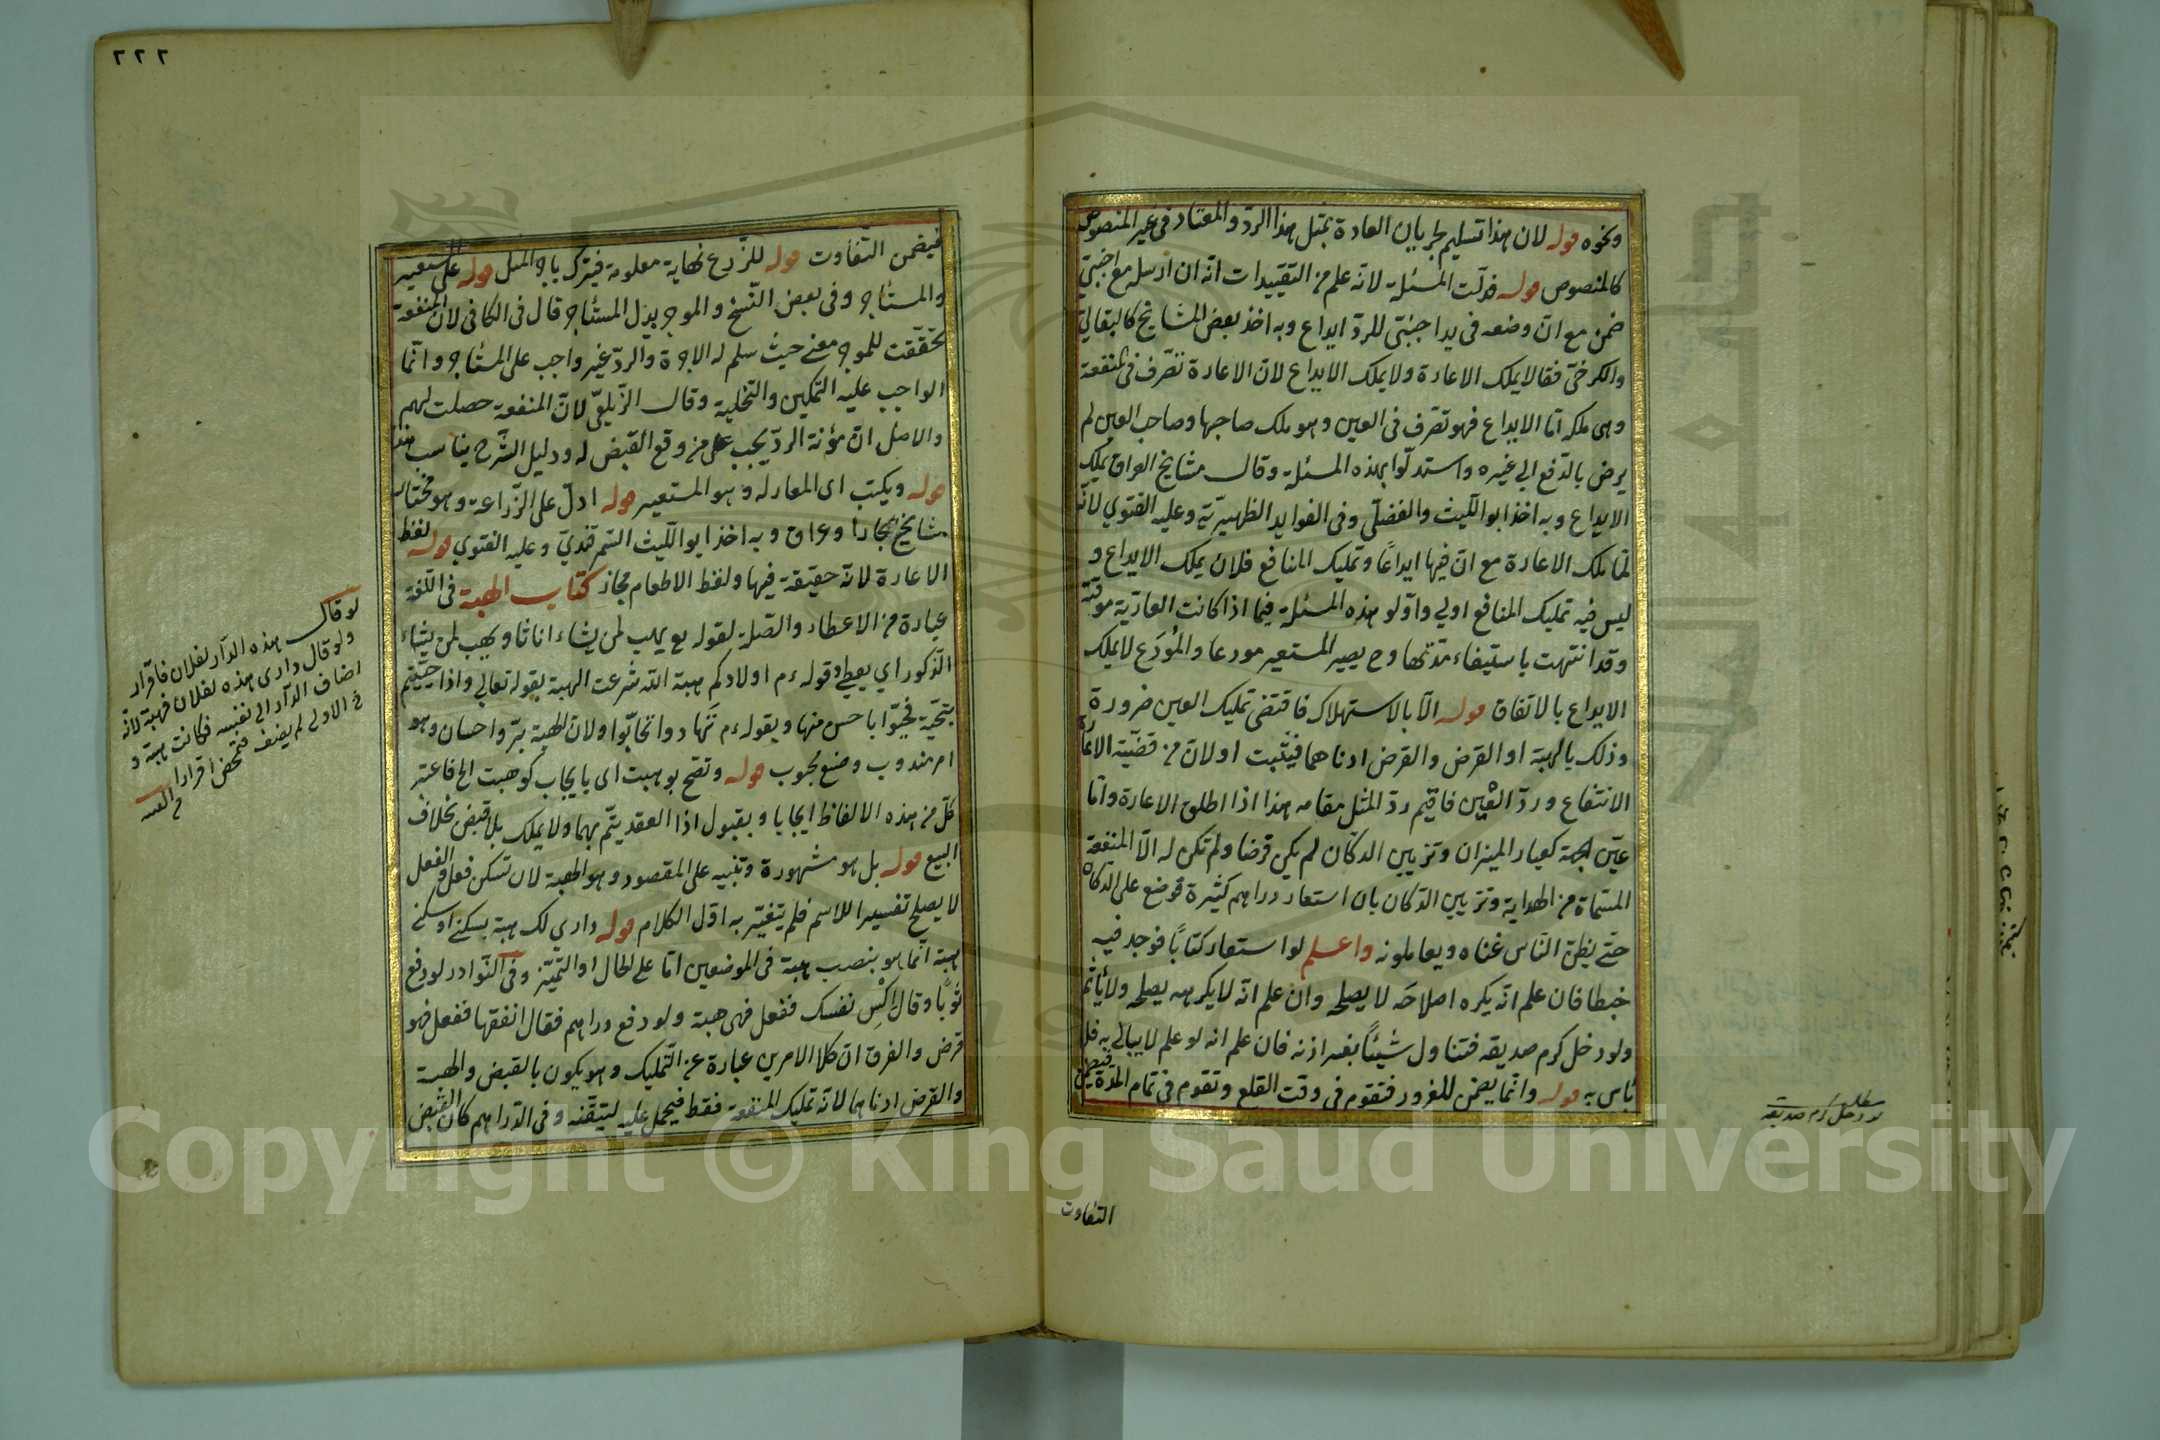 ونحوه قوله لان هذا تسليم لجريان العادة بمثل هذا الرد والمعتاد في غير المنصوص
كالمنصوص قوله فدلت المسئلة لانه علم من التقييدات انه ان ارسل مع اجنبي
ضمن مع ان وضعه في يد اجنبي للرد ايداع وبه اخذ بعض المشايخ كالبقالي
والكرخي فقالا يملك الاعارة ولا يملك الايداع لان الاعارة تصرف في المنفعة
وهي ملكه اما الايداع فهو تصرف في العين وهو ملك صاحبها وصاحب العين لم
يرض بالدفع الي غيره واستدلوا بهذه المسئلة وقال مشايخ العراق يملك
الايداع وبه اخذ ابو الليث والفضلي وفي الفوايد الظهيرية وعليه الفتوي لانه
لما ملك الاعارة مع ان فيها ايداعا وتمليك المنافع فلان يملك الايداع و
ليس فيه تمليك المنافع اولي واولو هذه المسئلة فيما اذا كانت العارية موقتة
وقد انتهت باستيفاء مدتها وح يصير المستعير مودعا والمودع لا يملك
الايداع بالاتفاق قوله الا بالاستهلاك فاقتضى تمليك العين ضرورة
وذلك بالهبة او القرض والقرض ادناهما فيثبت او لان من قضية الاعارة
الانتفاع ورد العين فاقيم رد المثل مقامه هذا اذا اطلق الاعارة واما
عين الجهة كعيار الميزان وتزيين الدكان لم يكن قرضا ولم تكن له الا المنفعة
المسماة من الهداية وتزيين الدكان بان استعار دراهم كثيرة فوضع على الدكان
حتى يظن الناس غناه ويعاملونه واعلم لو استعار كتابا فوجد فيه
خطا فان علم انه يكره اصلاحه لا يصلحه وان علم انه لا يكرهه يصلحه ولا يأثم
ولو دخل كرم صديقه فتناول شيئا بغير اذنه فان علم انه لو علم لا يبالي به فلا
باس به قوله وانما يضمن للغرور فتقوم في وقت القلع وتقوم في تمام المدة فيضمن
التفاوت
لو دخل كرم صديقه
٢٢٢
فيضمن التفاوت قوله للزرع نهاية معلومة فيترك باجر المثل قوله على المستعير
والمستاجر وفي بعض النسخ والموجر بدل المستاجر قال في الكافي لان المنفعة
تحققت للموجر معنى حيث سلم له الاجرة والرد غير واجب على المستاجر وانما
الواجب عليه التمكين والتخلية وقال الزيلعي لان المنفعة حصلت لهم
والاصل ان مؤنة الرد يجب على من وقع القبض له ودليل الشرح يناسب هذا
قوله ويكتب اى المعار له وهو المستعير قوله ادل على الزراعة وهو مختار
مشايخ بخارا وعراق وبه اخذ ابو الليث السمرقندي وعليه الفتوي قوله لفظ
الاعارة لانه حقيقة فيها ولفظ الاطعام مجاز كتاب الهبة في اللغة
عبارة من الاعطاء والصلة لقوله تع يهب لمن يشاء اناثا ويهب لمن يشاء
الذكور اي يعطي وقوله ءم اولادكم هبة الله شرعت الهبة بقوله تعالي واذا حييتم
بتحية فحيوا باحسن منها وبقوله ءم تهادوا تحابوا ولان الهبة بر واحسان وهو
امر مندوب وضع محبوب قوله وتصح بوهبت اى بايجاب كوهبت الخ فاعتبر
كل من هذه الالفاظ ايجابا وبقبول اذا العقد يتم بهما ولا يملك بلا قبض بخلاف
البيع قوله بل هو مشهورة وتنبيه على المقصود وهو الهبة لان تسكن فعل والفعل
لا يصلح تفسيرا للاسم فلم يتغير به اول الكلام قوله داري لك هبة يسكنى او سكنى
هبة انما هو بنصب هبة في الموضعين اما على الحال او التميز وفي النوادر لو دفع
ثوبا وقال اكس نفسك ففعل فهي هبة ولو دفع دراهم فقال انفقها ففعل فهو
قرض والفرق ان كلا الامرين عبارة عن التمليك وهو يكون بالقبض والهبة
والقرض ادناها لانه تمليك المنفعة فقط فيحمل عليه ليتيقنه وفي الدراهم كان القبض
لو قال هذه الدار لفلان فاقرار
ولو قال داري هذه لفلان فهبة لانه
اضاف الدار الى نفسه فكانت هبة و
في الاولى لم يضف فتمحض اقرارا
Copyright © King Saud University